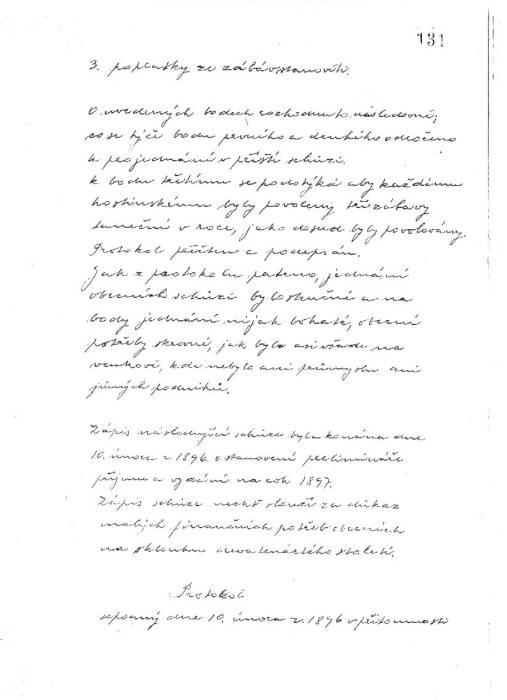 131
3. poplatky ze zábav stanoviti.
O uvedených bodech rozhodnuto následovně;
co se týče bodu prvního a druhého odročeno
k projednání v příští schůzi.
k bodu třetímu se podotýká aby každému
hostinskému byly povoleny tři zábavy
taneční v roce, jako dosud byly povolovány.
Protokol přečten a podepsán.
Jak z protokolu patrno, jednání
obecních schůzí bylo stručné a na
body jednání nijak bohaté, obecní
potřeby skrovné, jak bylo asi všude na
venkově, kde nebylo ani průmyslu ani
jiných podniků.
Zápis následující schůze byla konána dne
10. února r. 1896 o stanovení preliminaře
příjmu a vydání na rok 1897.
Zápis schůze nechť slouží za důkaz
malých finančních potřeb obecních
na sklonku devatenáctého století.
Protokol
sepsaný dne 10. února r. 1896 v přítomnosti